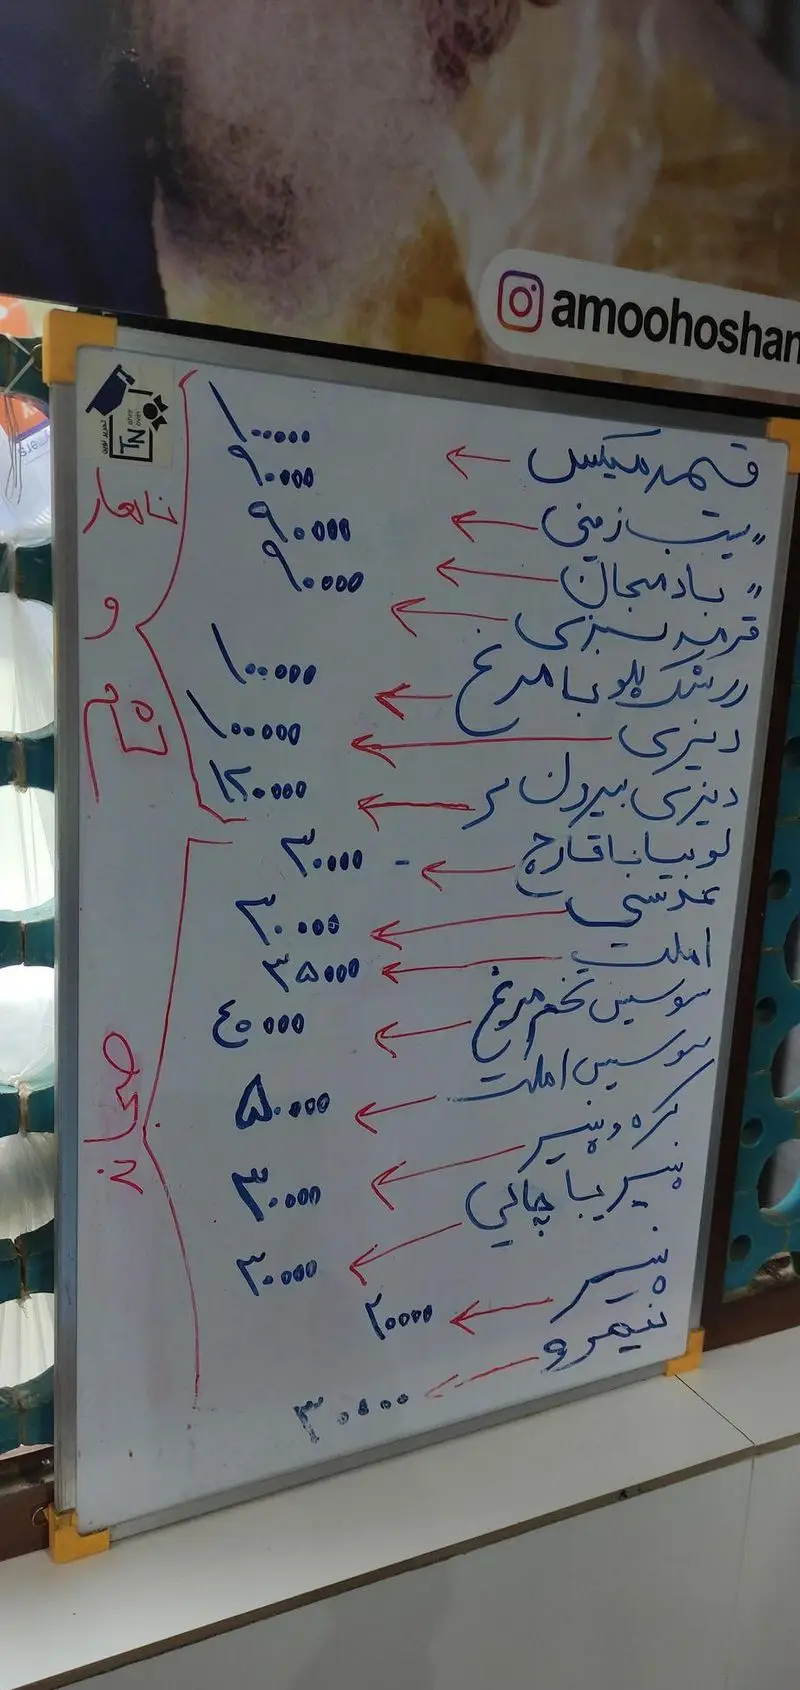 amoohoshan
TN
قیمه میکس ← ۱۰۰۰۰۰
〃 سیب زمینی ← ۹۰۰۰۰
〃 بادمجان ← ۹۰۰۰۰
قرمه سبزی ← ۹۰۰۰۰
زرشک پلو با مرغ ← ۱۰۰۰۰۰
دیزی ← ۱۰۰۰۰۰
دیزی بیرون بر ←
لوبیا با قارچ ← - ۳۰۰۰۰
عدسی ← ۳۰۰۰۰
املت ← ۳۵۰۰۰
سوسیس تخم مرغ ← ۴۰۰۰۰
سوسیس املت ← ۵۰۰۰۰
کره و پنیر ← ۳۰۰۰۰
پنیر با چایی ← ۳۰۰۰۰
پنیر ← ۲۰۰۰۰
نیمرو ← ۳۰۰۰۰
ناهار
و
شام
صبحانه